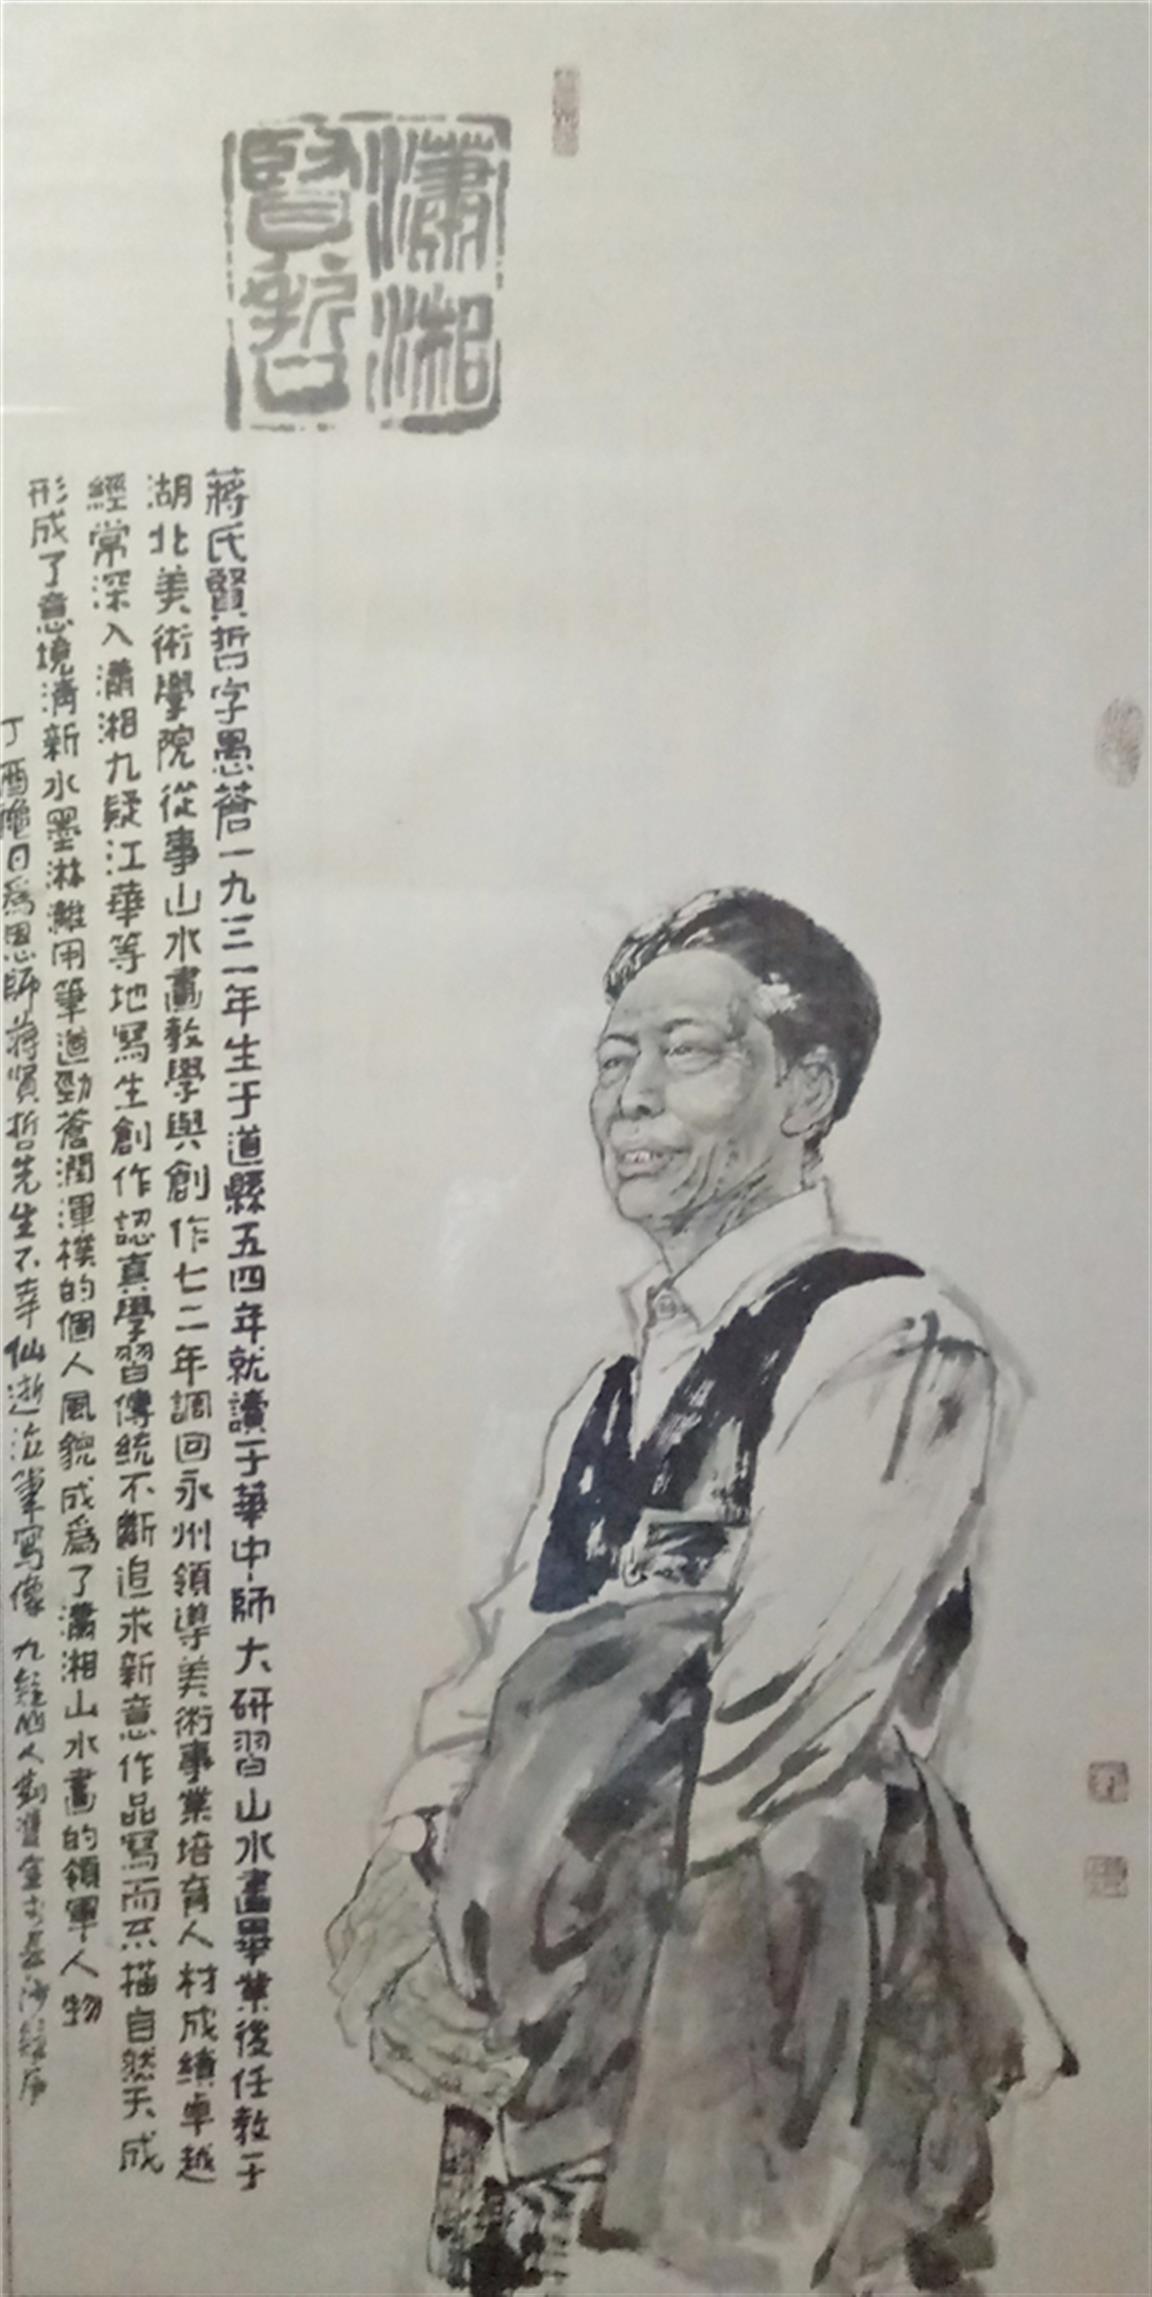 瀟湘
賢哲
蔣氏賢哲字愚蒼一九三一年生于道縣五四年就讀于華中師大研習山水畫畢業後任教于
湖北美術學院從事山水畫教學與創作七二年調回永州領導美術事業培育人材成績卓越
經常深入瀟湘九疑江華等地寫生創作認真學習傳統不斷追求新意作品寫而不描自然天成
形成了意境清新水墨淋灕用筆遒勁蒼潤渾樸的個人風貌成爲了瀟湘山水畫的領軍人物
丁酉 日爲恩師蔣賢哲先生不幸仙逝泣筆寫像九疑 人 長沙